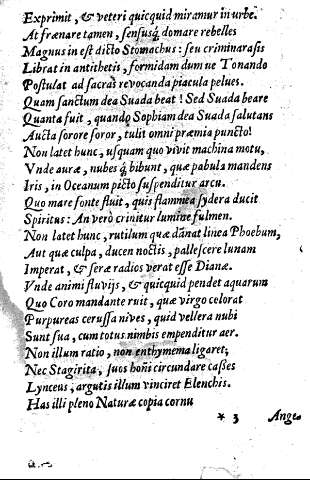 Exprimit, & veteri quicquid miramur in urbe.
At frænare tamen, sensusq́; domare rebelles
Magnus inest dicto Stomachus: seu criminarasis
Librat in antithetis, formidam dumue Tonando
Postulat ad sacras revocanda piacula pelues.
Quam sanctum dea Suada beat! Sed Suada beare
Quanta fuit, quando Sophiam dea Suada salutans
Aucta sorore soror, tulit omni præmia puncto!
Non latet hunc, usquam quo vivit machina motu,
Vnde auræ, nubes q́; bibunt, quæ pabula mandens
Iris, in Oceanum picto suspenditur arcu.
Quo mare fonte fluit, quis flammea sydera ducit
Spiritus: An verò crinitur lumine fulmen.
Non latet hunc, rutilum quæ dãnat linea Phoebum,
Aut quæ culpa, ducen noctis, pallescere lunam
Imperat, & seræ radios verat esse Dianæ.
Vnde animi fluvijs, & quicquid pendet aquarum
Quo Coro mandante ruit, quæ virgo celorat
Purpureas cerussa nives, quid vellera nubi
Sunt sua, cum totus nimbis empenditur aer.
Non illum ratio, non enthymema ligaret;
Nec Stagirita, suos hoñi circundare casses
Lynceus; argutis illum vinciret Elenchis.
Has illi pleno Naturæ copia cornu
* 3 Ange